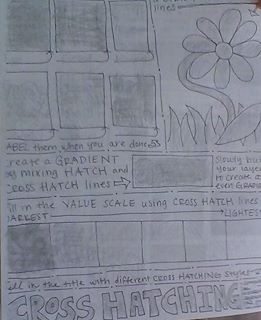 lines
LABEL them when you are done.
Create a GRADIENT
by mixing HATCH and
CROSS HATCH lines
Slowly build
your layers
to create an
even GRADIENT
Fill in the VALUE SCALE using CROSS HATCH lines
DARKEST
LIGHTEST
Fill in the title with different CROSS HATCHING styles
CROSS HATCHING